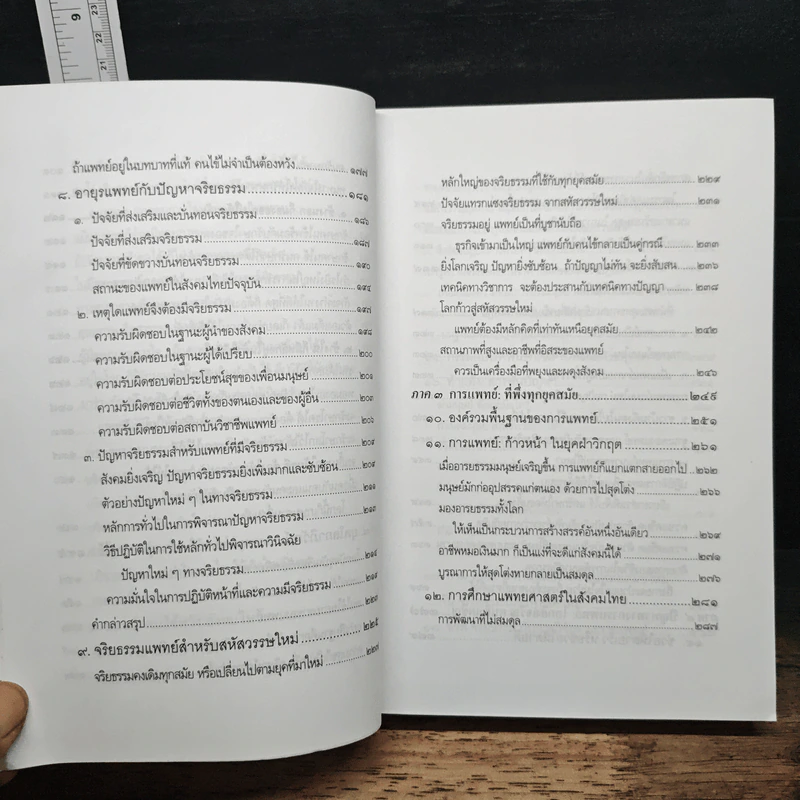 9
23
22
21
ถ้าแพทย์อยู่ในบทบาทที่แท้ คนไข้ไม่จำเป็นต้องหวัง ๑๗๗
๘. อายุรแพทย์กับปัญหาจริยธรรม ๑๘๑
๑. ปัจจัยที่ส่งเสริมและบั่นทอนจริยธรรม ๑๘๖
ปัจจัยที่ส่งเสริมจริยธรรม ๑๘๗
ปัจจัยที่ขัดขวางบั่นทอนจริยธรรม ๑๙๐
สถานะของแพทย์ในสังคมไทยปัจจุบัน ๑๙๔
๒. เหตุใดแพทย์จึงต้องมีจริยธรรม ๑๙๗
ความรับผิดชอบในฐานะผู้นำของสังคม ๑๙๘
ความรับผิดชอบในฐานะผู้ได้เปรียบ ๒๐๐
ความรับผิดชอบต่อประโยชน์สุขของเพื่อนมนุษย์ ๒๐๑
ความรับผิดชอบต่อชีวิตทั้งของตนเองและของผู้อื่น ๒๐๒
ความรับผิดชอบต่อสถาบันวิชาชีพแพทย์ ๒๐๖
๓. ปัญหาจริยธรรมสำหรับแพทย์ที่มีจริยธรรม ๒๐๙
สังคมยิ่งเจริญ ปัญหาจริยธรรมยิ่งเพิ่มมากและซับซ้อน ๒๐๙
ตัวอย่างปัญหาใหม่ ๆ ในทางจริยธรรม ๒๑๑
หลักการทั่วไปในการพิจารณาปัญหาจริยธรรม ๒๑๓
วิธีปฏิบัติในการใช้หลักทั่วไปพิจารณาวินิจฉัย
ปัญหาใหม่ ๆ ทางจริยธรรม
ความมั่นใจในการปฏิบัติหน้าที่และความมีจริยธรรม ๒๑๙
คำกล่าวสรุป ๒๒๓
๙. จริยธรรมแพทย์สำหรับสหัสวรรษใหม่ ๒๒๕
จริยธรรมคงเดิมทุกสมัย หรือเปลี่ยนไปตามยุคที่มาใหม่ ๒๒๗
หลักใหญ่ของจริยธรรมที่ใช้กับทุกยุคสมัย ๒๒๙
ปัจจัยแทรกแซงจริยธรรม จากสหัสวรรษใหม่ ๒๓๑
จริยธรรมอยู่ แพทย์เป็นที่บูชานับถือ
ธุรกิจเข้ามาเป็นใหญ่ แพทย์กับคนไข้กลายเป็นคู่กรณี ๒๓๓
ยิ่งโลกเจริญ ปัญหายิ่งซับซ้อน ถ้าปัญญาไม่ทัน จะยิ่งสับสน ๒๓๖
เทคนิคทางวิชาการ จะต้องประสานกับเทคนิคทางปัญญา ๒๓๘
โลกก้าวสู่สหัสวรรษใหม่
แพทย์ต้องมีหลักคิดที่เท่าทันเหนือยุคสมัย ๒๔๒
สถานภาพที่สูงและอาชีพที่อิสระของแพทย์
ควรเป็นเครื่องมือที่พยุงและผดุงสังคม ๒๔๖
ภาค ๓ การแพทย์: ที่พึ่งทุกยุคสมัย ๒๔๙
๑๐. องค์รวมพื้นฐานของการแพทย์ ๒๕๑
๑๑. การแพทย์: ก้าวหน้า ในยุคฝ่าวิกฤต ๒๖๑
เมื่ออารยธรรมมนุษย์เจริญขึ้น การแพทย์ก็แยกแตกสายออกไป ๒๖๒
มนุษย์มักก่ออุปสรรคแก่ตนเอง ด้วยการไปสุดโต่ง ๒๖๖
มองอารยธรรมทั้งโลก
ให้เห็นเป็นกระบวนการสร้างสรรค์อันหนึ่งอันเดียว ๒๖๙
อาชีพหมอเงินมาก ก็เป็นแง่ที่จะดีแก่สังคมนี้ได้ ๒๗๑
บูรณาการให้สุดโต่งหายกลายเป็นสมดุล ๒๗๖
๑๒. การศึกษาแพทยศาสตร์ในสังคมไทย ๒๘๑
การพัฒนาที่ไม่สมดุล ๒๘๗